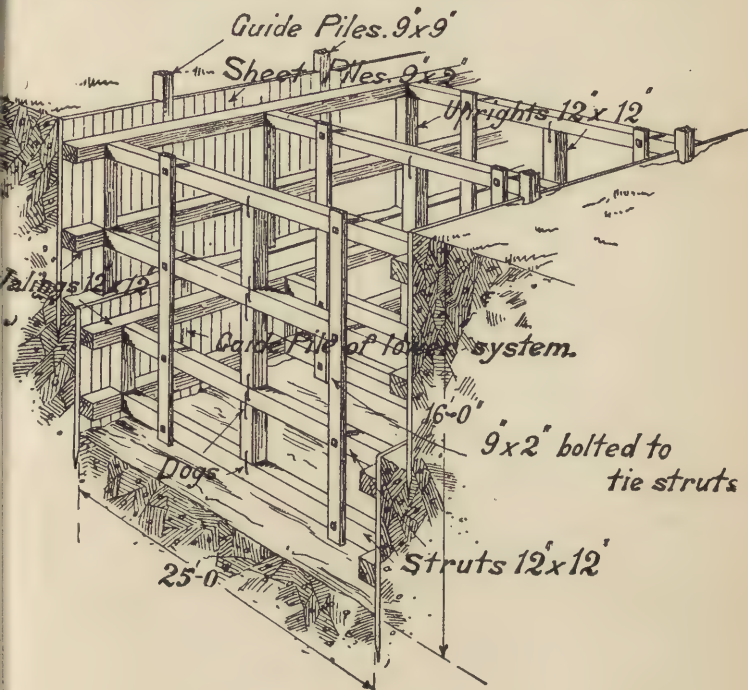 Guide Piles. 9"x9"
Sheet Piles. 9"x2"
Uprights 12"x 12"
Walings 12"x12"
Guide Pile of lower system.
16'-0"
9"x2" bolted to
tie struts
Dogs
Struts 12"x12"
25'-0"